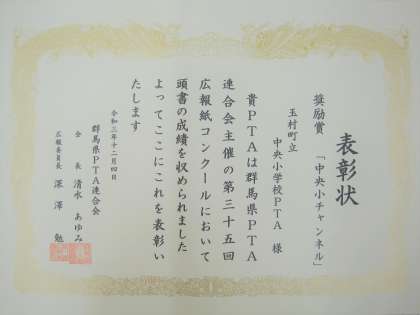 表彰状
奨励賞 「中央小チャンネル」
玉村町立
中央小学校PTA 様
貴PTAは群馬県PTA
連合会主催の第三十五回
広報紙コンクールにおいて
頭書の成績を収められました
よってここにこれを表彰い
たします
令和三年十二月四日
群馬県PTA連合会
会長 清水 あゆみ
広報委員長 深澤 勉